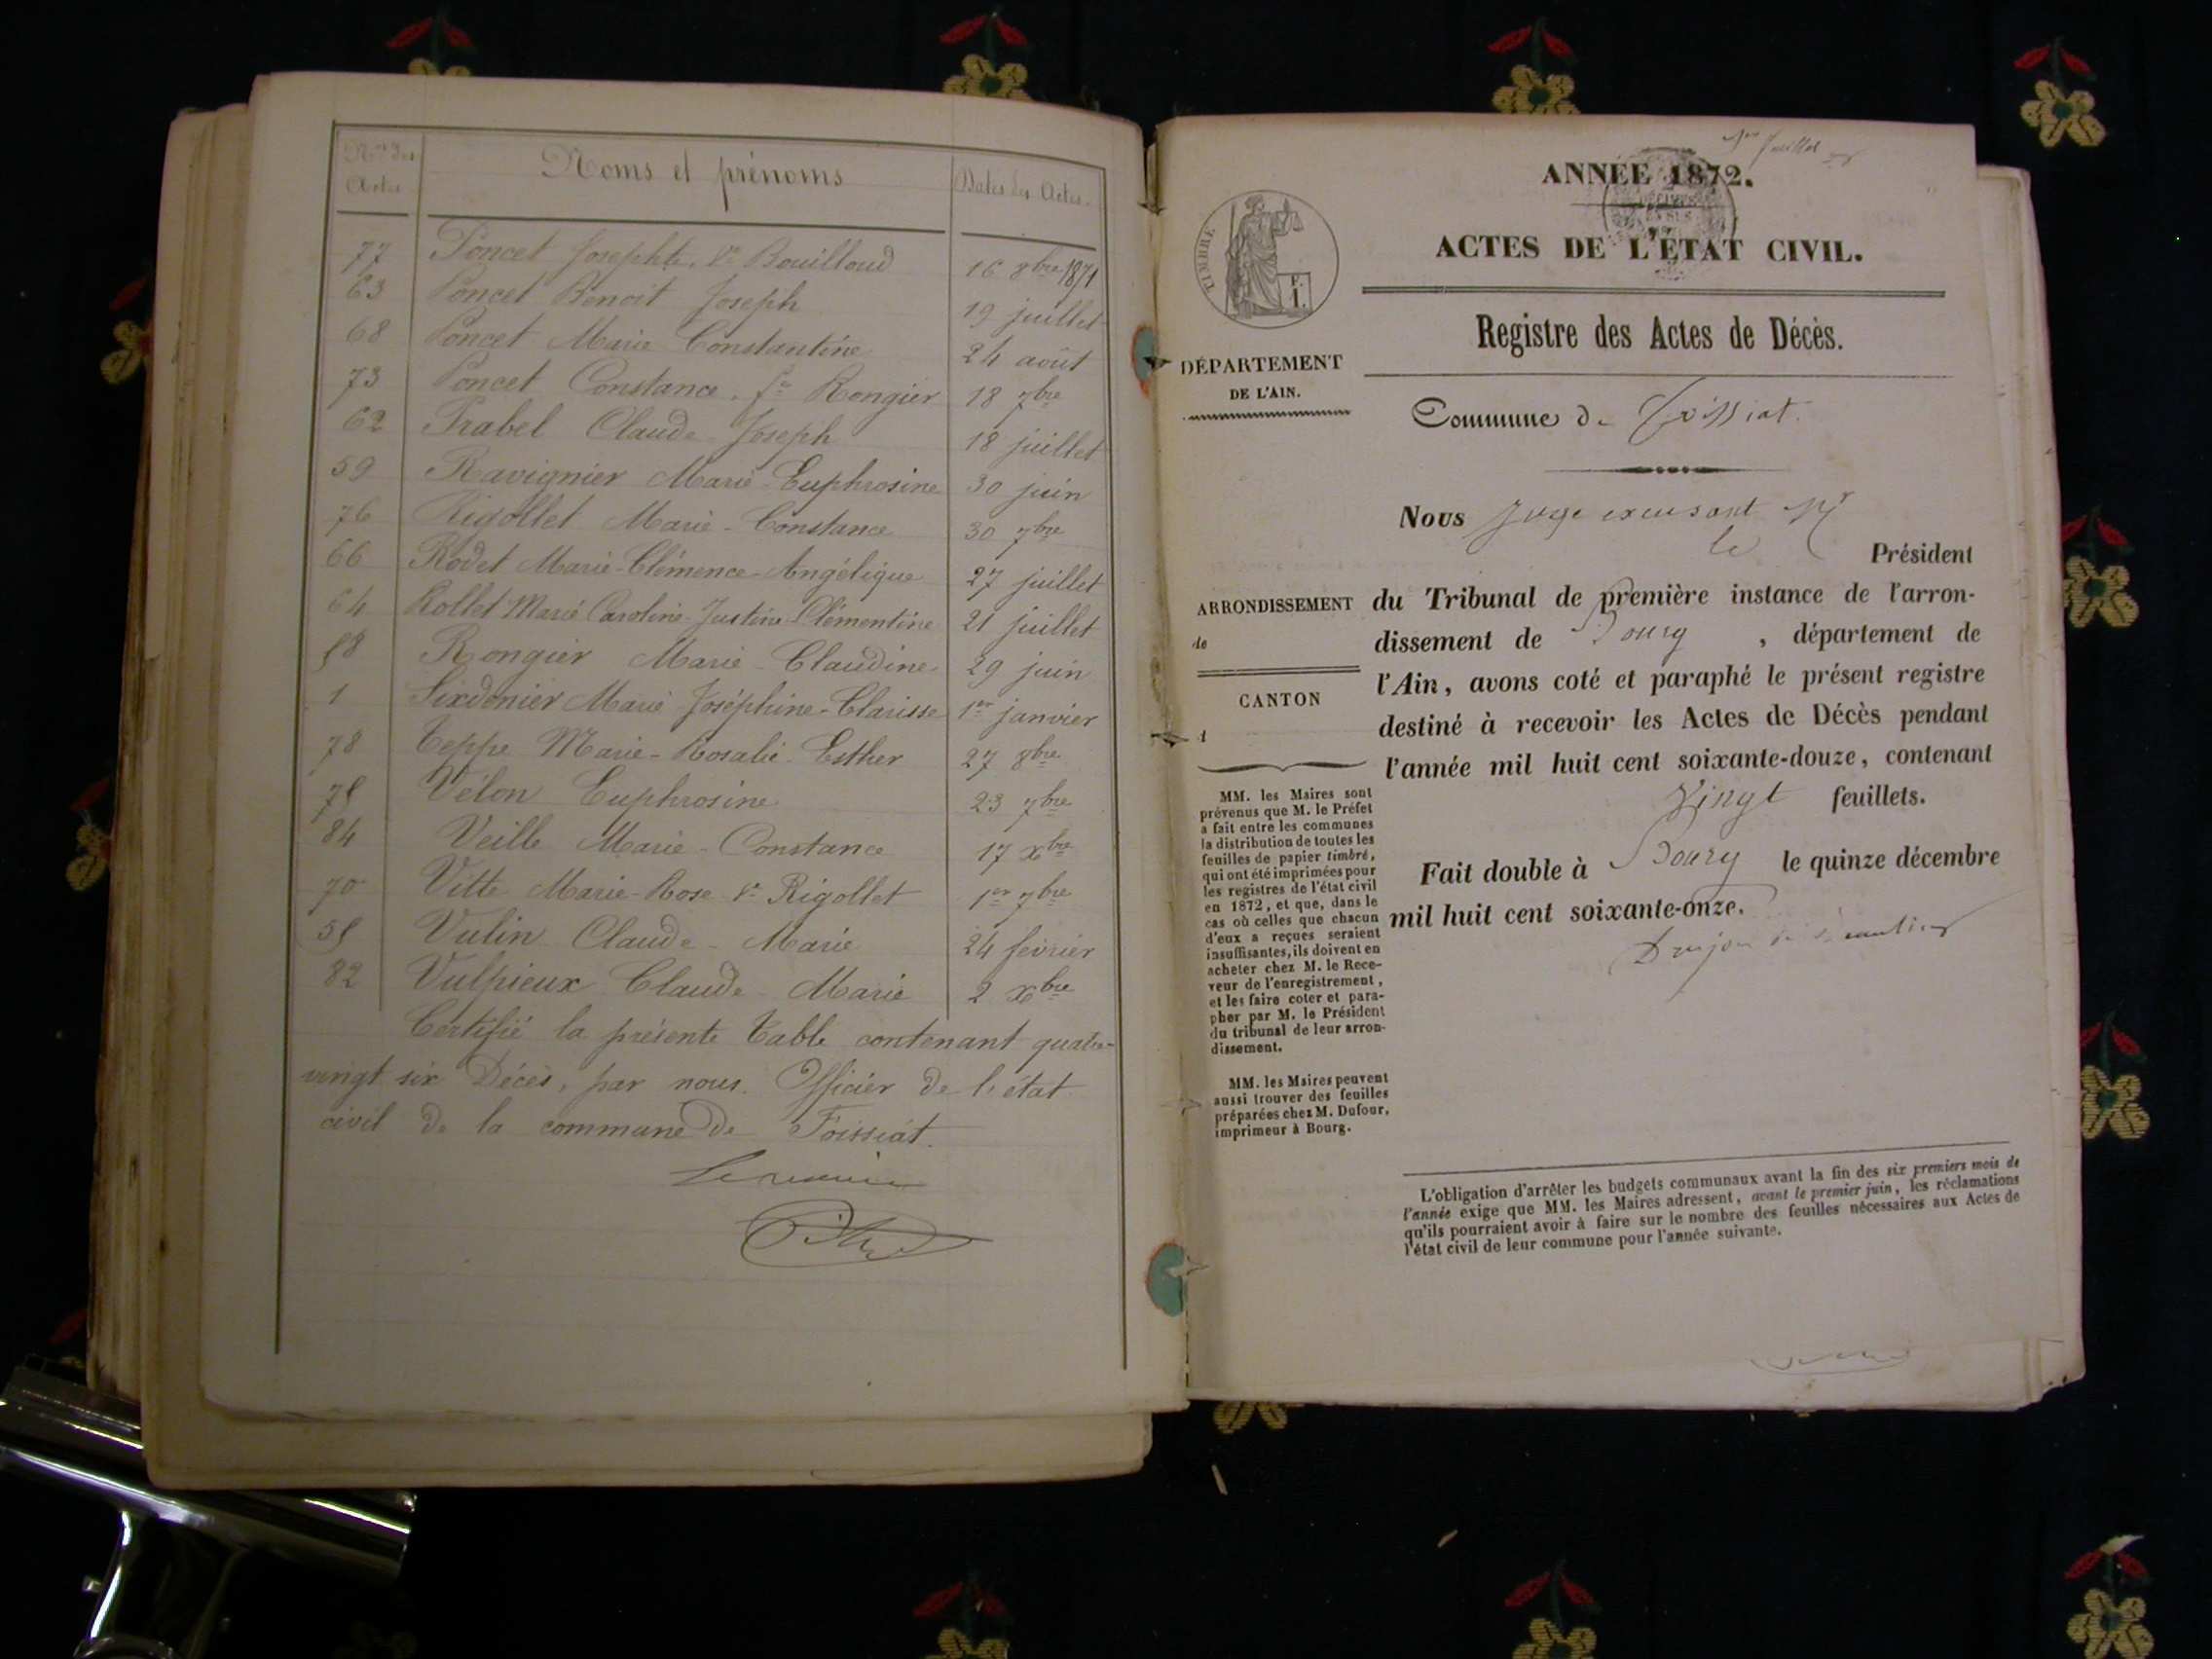 Nos des Actes
Noms et prénoms
Dates des Actes.
77 Poncet Josephte, Ve Bouilloud 16 8bre 1871
63 Poncet Benoit Joseph 19 juillet
68 Poncet Marie Constantine 24 août
73 Poncet Constance, fe Rongier 18 7bre
62 Prabel Claude-Joseph 18 juillet
59 Ravignier Marie-Euphrosine 30 juin
76 Rigollet Marie-Constance 30 7bre
66 Rodet Marie-Clémence-Angélique 27 juillet
64 Rollet Marie Caroline-Justine-Clémentine 21 juillet
58 Rongier Marie-Claudine 29 juin
1 Sixdenier Marie-Joséphine-Clarisse 1er janvier
78 Teppe Marie-Rosalie-Esther 27 8bre
75 Vélon Euphrosine 23 7bre
84 Veille Marie-Constance 17 xbre
70 Vitte Marie-Rose Ve Rigollet 1er 7bre
55 Vulin Claude-Marie 24 février
82 Vulpieux Claude-Marie 2 xbre
Certifié la présente Table contenant quatre-
vingt six Décès, par nous. Officier de l'état
civil de la commune de Foissiat.
Le maire
1er feuillet
ANNÉE 1872.
ACTES DE L'ÉTAT CIVIL.
Registre des Actes de Décès.
TIMBRE
F.
1.
DÉPARTEMENT
DE L'AIN.
Commune de Foissiat.
Nous Juge excusant Mr
le Président
ARRONDISSEMENT
de
CANTON
du Tribunal de première instance de l'arron-
dissement de Bourg, département de
l'Ain, avons coté et paraphé le présent registre
destiné à recevoir les Actes de Décès pendant
l'année mil huit cent soixante-douze, contenant
Vingt feuillets.
Fait double à Bourg le quinze décembre
mil huit cent soixante-onze.
MM. les Maires sont
prévenus que M. le Préfet
a fait entre les communes
la distribution de toutes les
feuilles de papier timbré,
qui ont été imprimées pour
les registres de l'état civil
en 1872, et que, dans le
cas où celles que chacun
d'eux a reçues seraient
insuffisantes, ils doivent en
acheter chez M. le Rece-
veur de l'enregistrement,
et les faire coter et para-
pher par M. le Président
du tribunal de leur arron-
dissement.
MM. les Maires peuvent
aussi trouver des feuilles
préparées chez M. Dufour,
imprimeur à Bourg.
L'obligation d'arrêter les budgets communaux avant la fin des six premiers mois de
l'année exige que MM. les Maires adressent, avant le premier juin, les réclamations
qu'ils pourraient avoir à faire sur le nombre des feuilles nécessaires aux Actes de
l'état civil de leur commune pour l'année suivante.